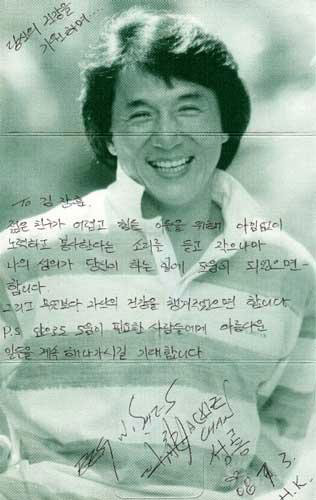 당신의 건강을
기원하며...
To 김 찬
젊은 친구가 어렵고 힘든 이웃을 위해서 아낌없이
노력하고 봉사한다는 소리를 듣고 작으나마
나의 성의가 당신이 하는 일에 도움이 되었으면
합니다.
그리고 무엇보다 자신의 건강을 챙겨주었으면 합니다
P.S 앞으로도 도움이 필요한 사람들에게 아름다운
일들을 계속 해나가시길 기대합니다
BEST WISHES
JACKIE
CHAN
성룡
98 7. 3.
H.K.